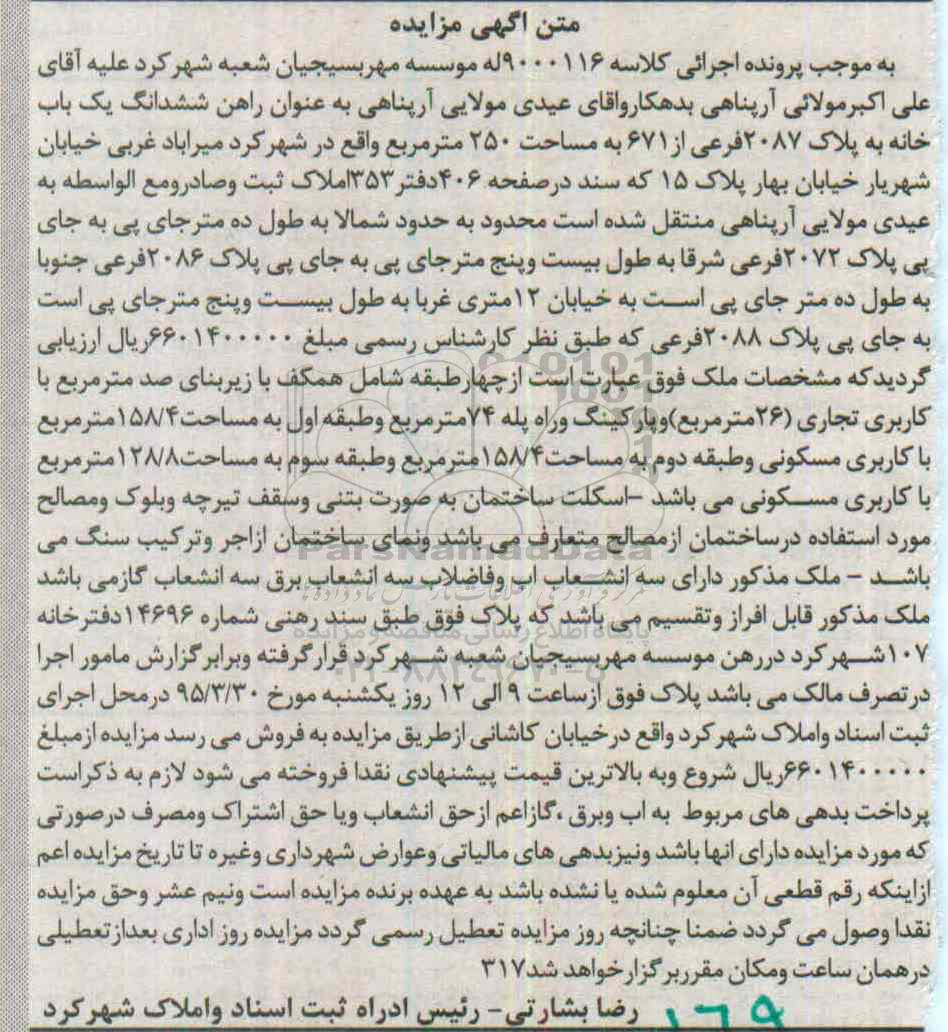 متن اگهی مزایده
به موجب پرونده اجرائی کلاسه ۹۰۰۰۱۱۶له موسسه مهربسیجیان شعبه شهرکرد علیه آقای
علی اکبرمولائی آرپناهی بدهکارواقای عیدی مولایی آرپناهی به عنوان راهن ششدانگ یک باب
خانه به پلاک ۲۰۸۷فرعی از۶۷۱ به مساحت ۲۵۰ مترمربع واقع در شهرکرد میراباد غربی خیابان
شهریار خیابان بهار پلاک ۱۵ که سند درصفحه ۴۰۶دفتر۳۵۳املاک ثبت وصادرومع الواسطه به
عیدی مولایی آرپناهی منتقل شده است محدود به حدود شمالا به طول ده مترجای پی به جای
پی پلاک ۲۰۷۲فرعی شرقا به طول بیست وپنج مترجای پی به جای پی پلاک ۲۰۸۶فرعی جنوبا
به طول ده متر جای پی است به خیابان ۱۲متری غربا به طول بیست وپنج مترجای پی است
به جای پی پلاک ۲۰۸۸فرعی که طبق نظر کارشناس رسمی مبلغ ۶۶۰۱۴۰۰۰۰۰ریال ارزیابی
گردیدکه مشخصات ملک فوق عبارت است ازچهارطبقه شامل همکف با زیربنای صد مترمربع با
کاربری تجاری (۲۶مترمربع)وپارکینگ وراه پله ۷۴مترمربع وطبقه اول به مساحت۱۵۸/۴مترمربع
با کاربری مسکونی وطبقه دوم به مساحت۱۵۸/۴مترمربع وطبقه سوم به مساحت۱۲۸/۸مترمربع
با کاربری مسکونی می باشد –اسکلت ساختمان به صورت بتنی وسقف تیرچه وبلوک ومصالح
مورد استفاده درساختمان ازمصالح متعارف می باشد ونمای ساختمان ازاجر وترکیب سنگ می
باشد – ملک مذکور دارای سه انشعاب اب وفاضلاب سه انشعاب برق سه انشعاب گازمی باشد
ملک مذکور قابل افراز وتقسیم می باشد که پلاک فوق طبق سند رهنی شماره ۱۴۶۹۶دفترخانه
۱۰۷شهرکرد دررهن موسسه مهربسیجیان شعبه شهرکرد قرارگرفته وبرابرگزارش مامور اجرا
درتصرف مالک می باشد پلاک فوق ازساعت ۹الی ۱۲ روز یکشنبه مورخ ۹۵/۳/۳۰ درمحل اجرای
ثبت اسناد واملاک شهرکرد واقع درخیابان کاشانی ازطریق مزایده به فروش می رسد مزایده ازمبلغ
۶۶۰۱۴۰۰۰۰۰ریال شروع وبه بالاترین قیمت پیشنهادی نقدا فروخته می شود لازم به ذکراست
پرداخت بدهی های مربوط به اب وبرق ،گازاعم ازحق انشعاب ویا حق اشتراک ومصرف درصورتی
که مورد مزایده دارای انها باشد ونیزبدهی های مالیاتی وعوارض شهرداری وغیره تا تاریخ مزایده اعم
ازاینکه رقم قطعی آن معلوم شده یا نشده باشد به عهده برنده مزایده است ونیم عشر وحق مزایده
نقدا وصول می گردد ضمنا چنانچه روز مزایده تعطیل رسمی گردد مزایده روز اداری بعدازتعطیلی
درهمان ساعت ومکان مقرربرگزارخواهد شد۳۱۷
رضا بشارتی- رئیس ادراه ثبت اسناد واملاک شهرکرد
ParsNamadData
پایگاه اطلاع رسانی مناقصه و مزایده